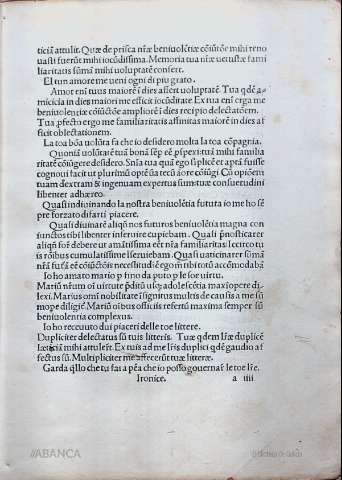 ticiā attulit. Quæ de prisca nr̄æ beniuolētiæ cōiūctōe mihi reno
uasti fuerūt mihi iocūdissima. Memoria tua nr̄æ uetustæ fami
liaritatis sūmā mihi uoluptatē confert.
El tun amore me ueni ogni di piu grato.
Amor em̄ tuus maiorē i dies affert uoluptatē. Tua qdē a
micicia in dies maiori me efficit iocūditate Ex tua em̄ erga me
beniuolentiæ cōiūctōe ampliorē i dies recipio delectatōem.
Tua pfecto ergo me familiaritatis affinitas maiore in dies af
ficit oblectationem.
La toa bōa uolūta fa che io desidero molta la toa cōpagnia.
Quoniā uolūtatē tuā bonā sēp eē pspexi: tuā mihi familia
ritatē cōtigere desidero. Sn̄ia tua quā ego sīplicē et aptā fuisse
cognoui facit ut plurimū optē ūa tecū æore cōiūgi Cū opiōem
tuam dextram & ingenuam expertus sum: tuæ consuetudini
libenter adhæreo.
Quasi indiuinando la nostra beniuolētia futura io me ho sē
pre forzato di farti piacere.
Quasi diuinarē aliqn̄ nos futuros beniuolētia magna con
iunctos tibi libenter inseruire cupiebam. Quasi pnosticarer
aliqn̄ fof debere ut amātissima eēt nr̄a familiaritas licerto tu
is rōibus cumulatissime iseruiebam. Quasi uaticinarer sūmā
nr̄ā fufā eē cōiūctōis necessitudiē egom̄ tibi totū accōmodabā
Io ho amato mario p fino da puto p le for uirtu.
Mariū nr̄um oī uirtute pditū usq; adolescētia maxīopere di
lexi. Marius omī nobilitate īsignitus multis de causis a me sū
mope diligiē. Mariū oībus officiis refertū maxima semper sū
beniuolentia complexus.
Io ho receuuto dui piaceri delle toe littere.
Dupliciter delectatus sū tuis litteris. Tuæ qdem lr̄æ duplicē
lætitiā mihi attulerēt. Ex tuis ad me lr̄is duplici qdē gaudio af
fectus sū. Multipliciter me affecerūt tuæ litteræ.
Garda qllo che tu fai a pēa che io posso gouernaf le toe lr̄e.
Ironice. a iiii
ABANCA